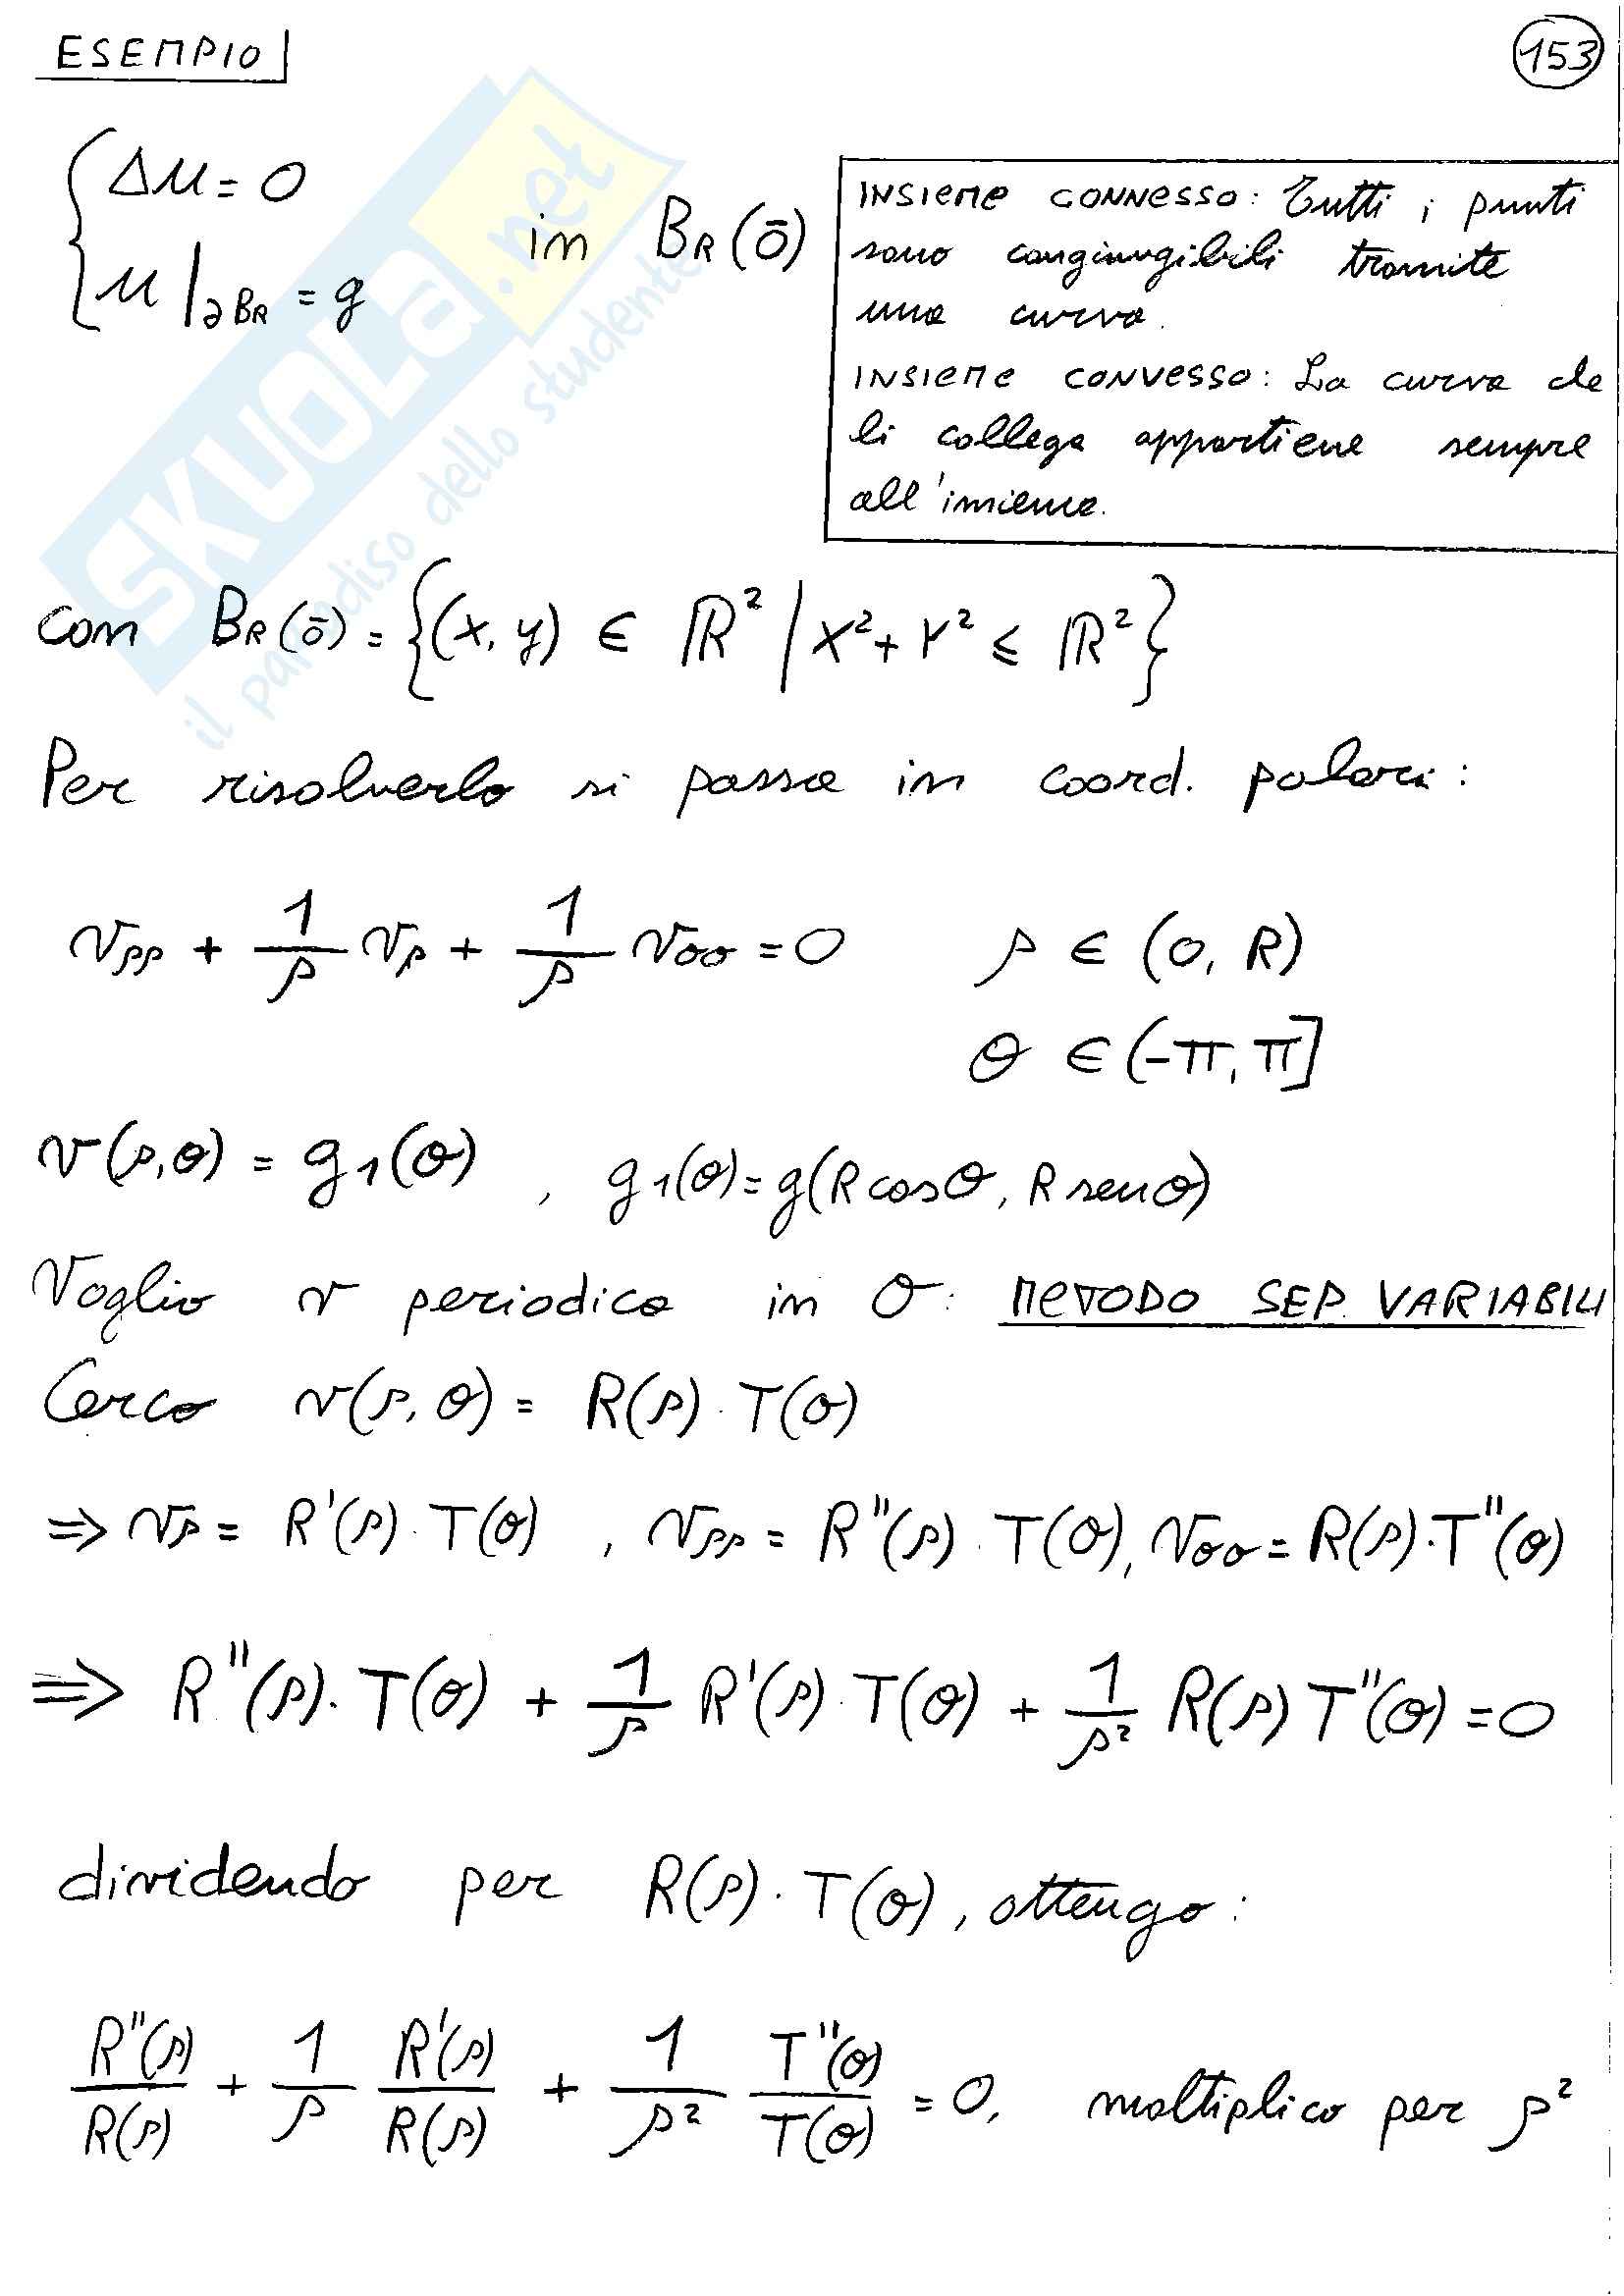 ESEMPIO
153
{ Δu = 0
{ u|∂BR = g
in BR(ō)
INSIEME CONNESSO: Tutti i punti
sono congiungibili tramite
una curva.
INSIEME CONVESSO: La curva che
li collega appartiene sempre
all'insieme.
con BR(ō) = {(x, y) ∈ ℝ² / x² + y² ≤ ℝ²}
Per risolverlo si passa in coord. polari:
vρρ + 1/ρ vρ + 1/ρ vθθ = 0 ρ ∈ (0, R)
θ ∈ (-π, π]
v(ρ,θ) = g1(θ) , g1(θ) = g(R cosθ, R senθ)
Voglio v periodica in θ: METODO SEP. VARIABILI
Cerco v(ρ, θ) = R(ρ) · T(θ)
⇒ vρ = R'(ρ) · T(θ) , vρρ = R''(ρ) · T(θ), vθθ = R(ρ) · T''(θ)
⇒ R''(ρ) · T(θ) + 1/ρ R'(ρ) · T(θ) + 1/ρ² R(ρ) T''(θ) = 0
dividendo per R(ρ) · T(θ), ottengo:
R''(ρ)/R(ρ) + 1/ρ R'(ρ)/R(ρ) + 1/ρ² T''(θ)/T(θ) = 0, moltiplico per ρ²
SKUOLA.net
il paradiso dello studente